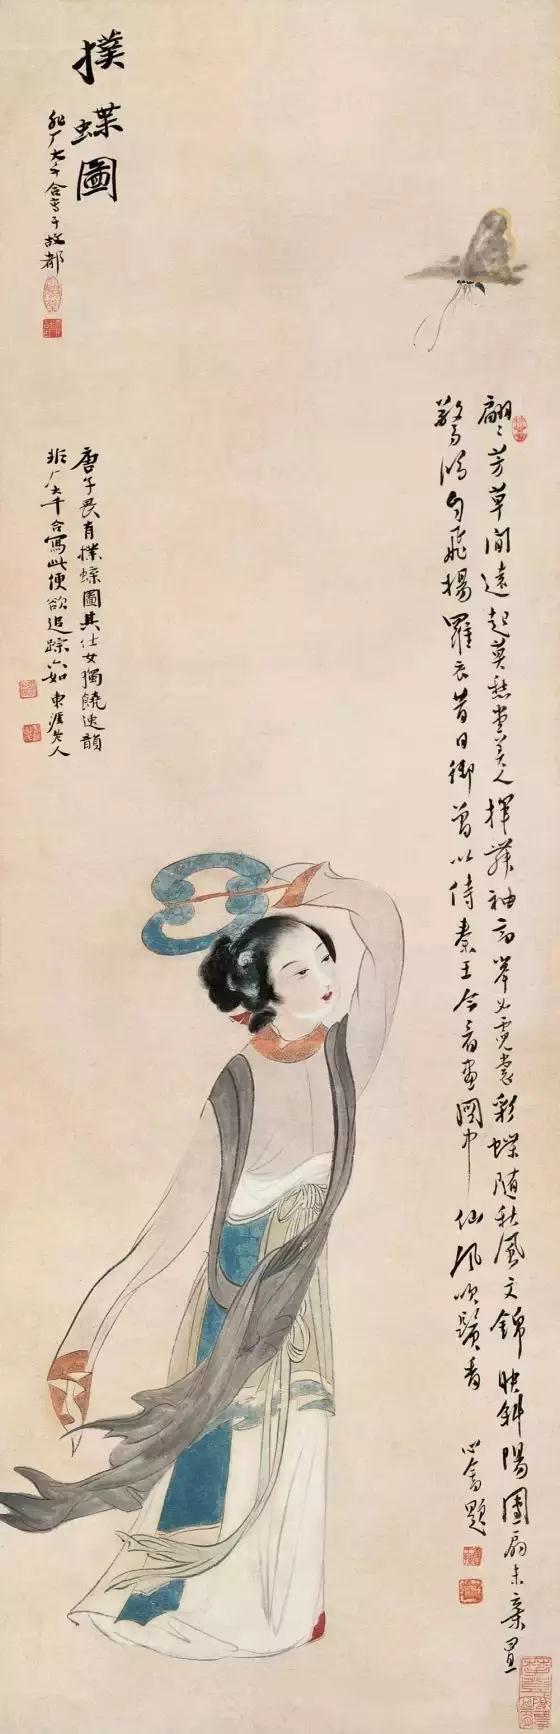 撲蝶圖
非厂大千合寫于故都
唐子畏有撲蝶圖其仕女獨饒逸韻
非厂大千合寫此便欲追踪六如 東涯老人
翩〻芳草間遠起莫愁堂美人揮舞袖高舉如霓裳彩蝶隨秋風文錦映斜陽團扇未棄置
驚鴻自飛揚羅衣昔日御曾以侍秦王今看畫圖中仙風吹鬢香 心畬題